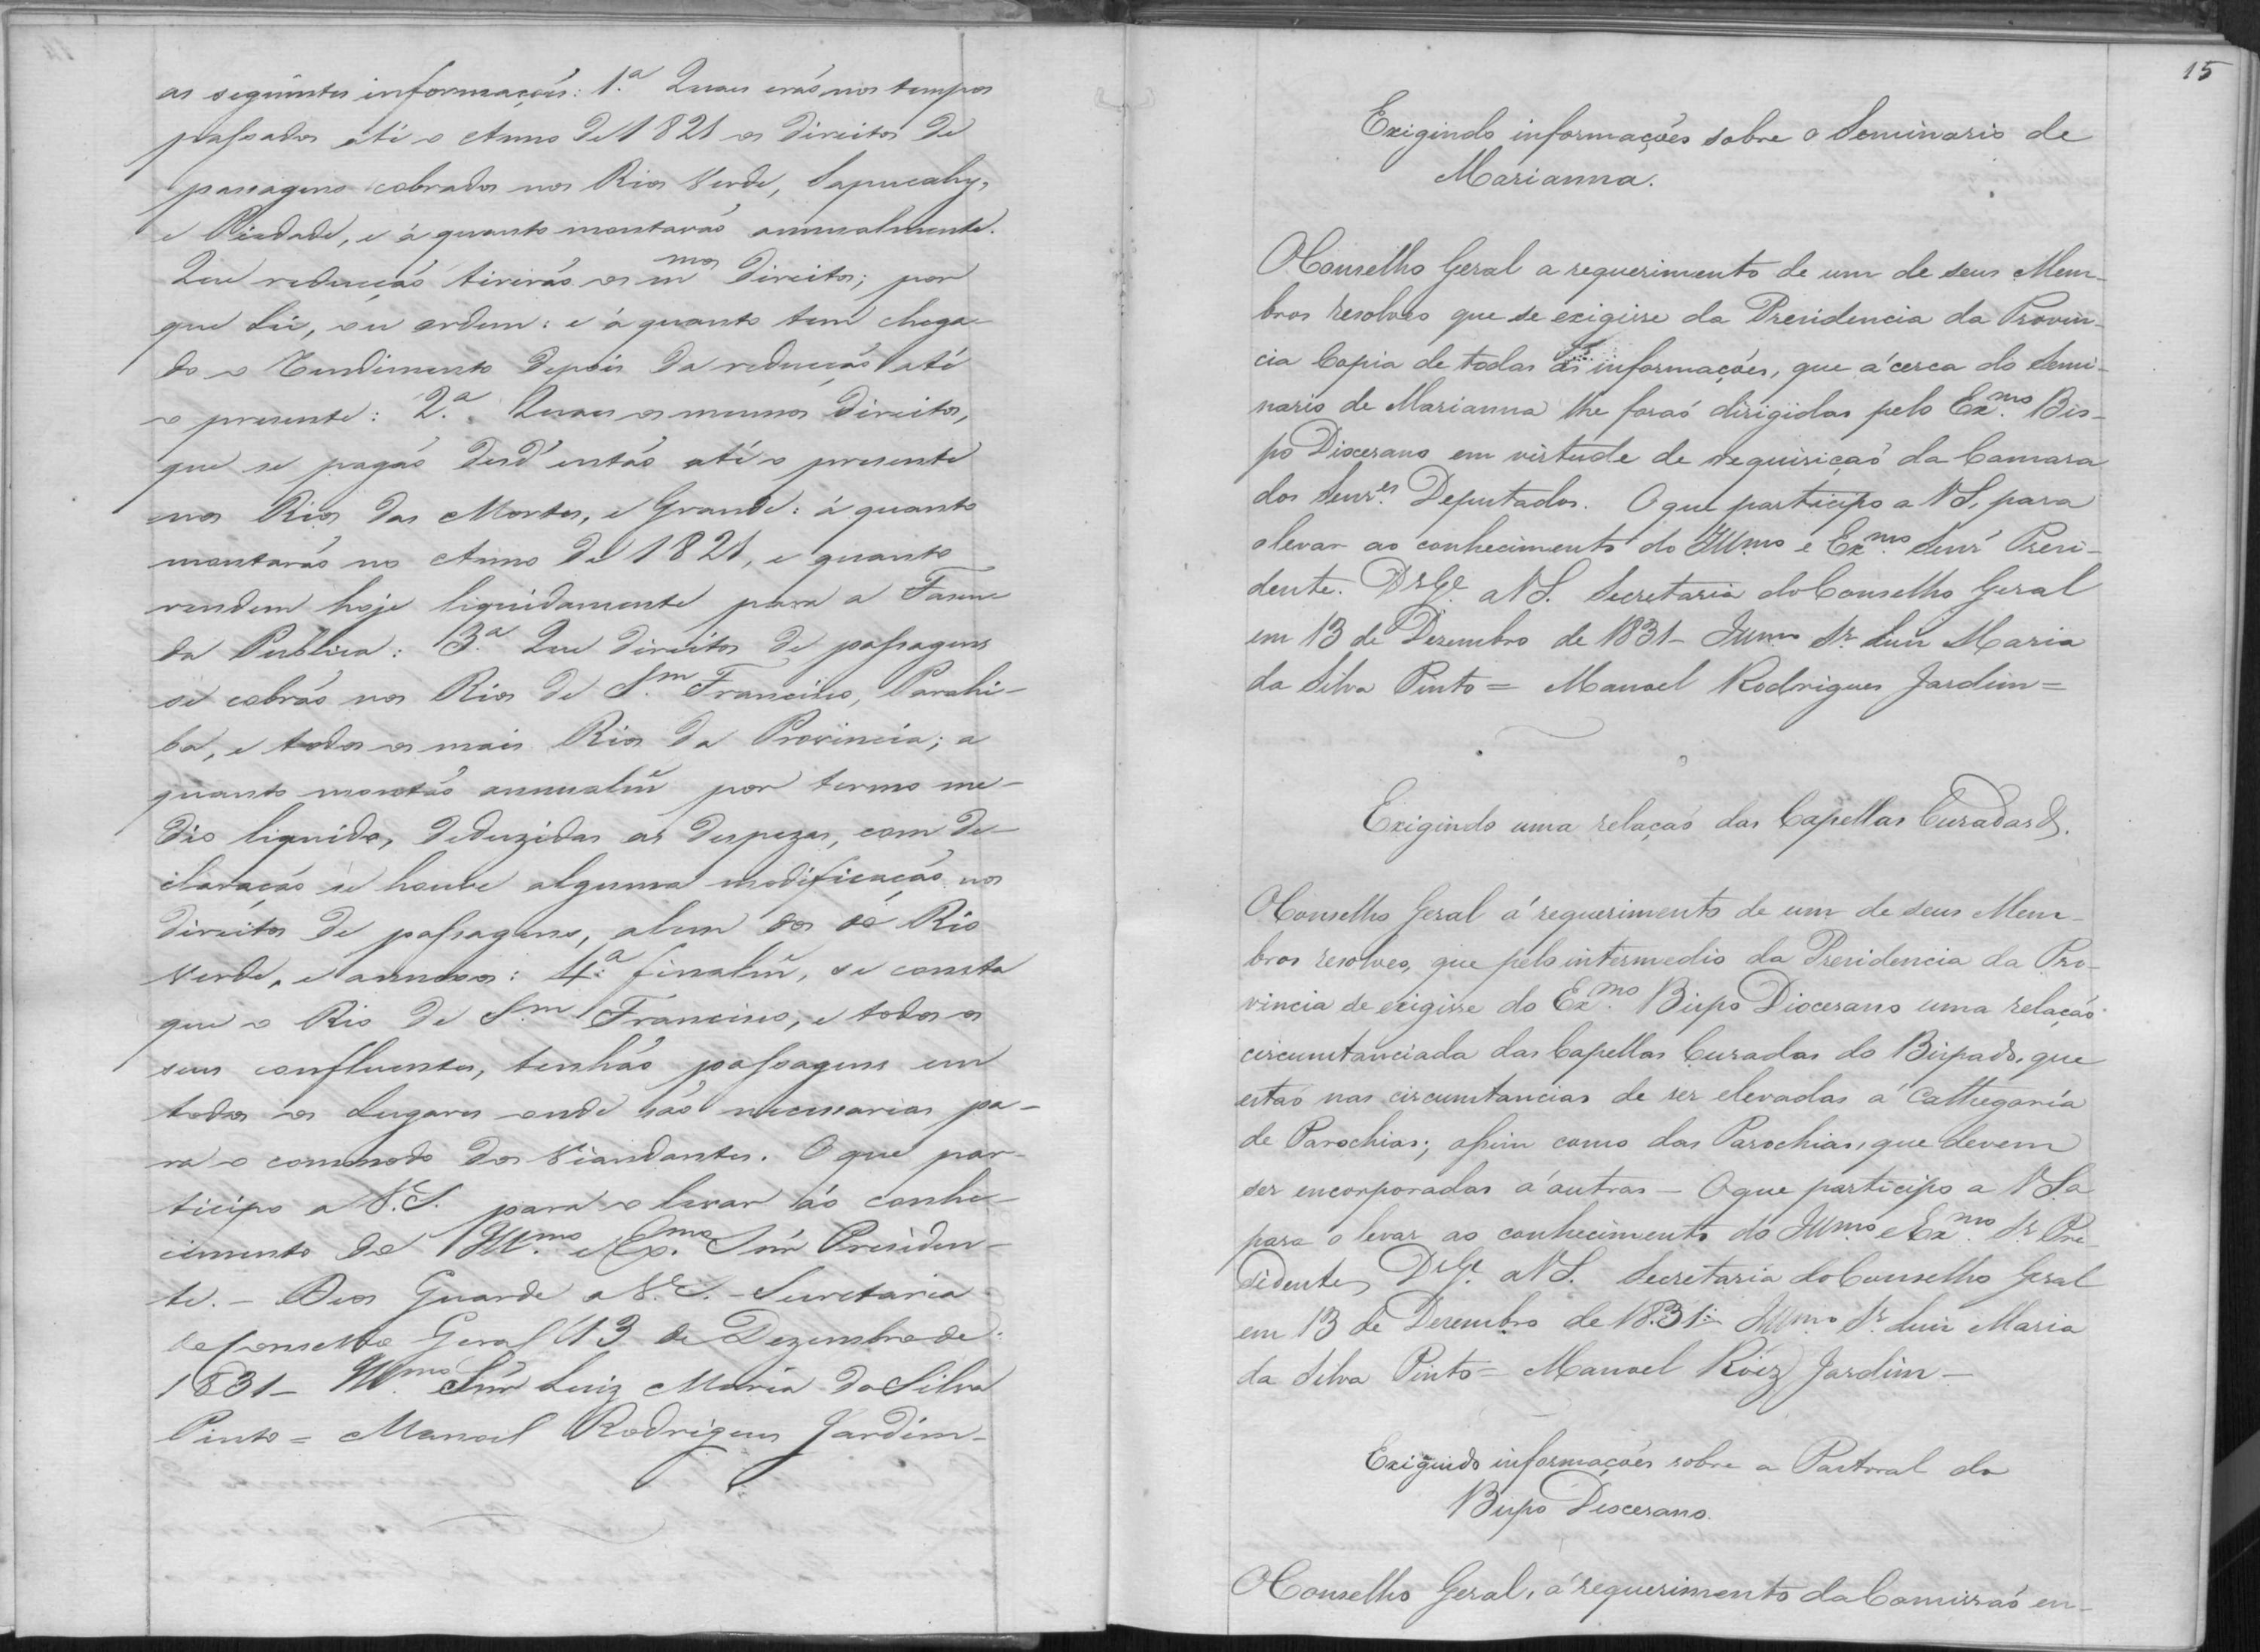 as seguintes informaçoẽs: 1.ª Quaes eraõ nos tempos
passados até o Anno de 1821 os direitos de
passagens cobrados nos Rios Verde, Sapucahy,
e Piedade, e á quanto montavaõ annualmente.
Que reducçaõ tiveraõ os m mos direitos; por
que Lei, ou ordem: e á quanto tem chega-
do o Rendimento depois da reducçaõ até
o presente: 2.ª Quaes os mesmos direitos,
que se pagaõ desd'entaõ até o presente
nos Rios das Mortes, e Grande: á quanto
montavaõ no Anno de 1821, e quanto
rendem hoje liquidamente para a Fasen-
da Publica: 3.ª Que direitos de passagens
se cobraõ nos Rios de S.m Francisco, Parahi-
ba, e todos os mais Rios da Provincia; a
quanto montaõ annualm̃ por termo me-
dio liquido, deduzidas as despezas, com de-
claraçaõ se houve alguma modificaçaõ nos
direitos de passagens, alem dos do Rio
Verde, e annexos: 4.ª finalm̃, se consta
que o Rio de S.m Francisco, e todos os
seus confluentes, tenhaõ passagens em
todos os Lugares onde saõ necessarias pa-
ra o commodo dos Viandantes. O que par-
ticipo a V.S. para o levar ao conhe-
cimento do Ill.mo e Ex.mo Snr̃ Presiden-
te. - Deos Guarde a V.S. - Secretaria
do Conselho Geral 13 de Dezembro de
1831 - Ill.mo Snr̃ Luiz Maria da Silva
Pinto = Manoel Rodrigues Jardim -
15
Exigindo informações sobre o Seminario de
Marianna.
O Conselho Geral a requerimento de um de seus Mem-
bros resolveo que se exigisse da Presidencia da Provin-
cia Copia de todas as informações, que á cerca do Semi-
nario de Marianna lhe foraõ dirigidas pelo Ex.mo Bis-
po Diocesano em virtude de requisiçaõ da Camara
dos Senr.es Deputados. O que participo a V S. para
o levar ao conhecimento do Ill.mo e Ex.mo Senr̃ Presi-
dente. Ds Ge a V S. Secretaria do Conselho Geral
em 13 de Desembro de 1831 - Illmo Sr. Luis Maria
da Silva Pinto = Manoel Rodrigues Jardim =
Exigindo uma relaçaõ das Capellas Curadas &.
O Conselho Geral á requerimento de um de seus Mem-
bros resolveo, que pelo intermedio da Presidencia da Pro-
vincia se exigisse do Ex.mo Bispo Diocesano uma relaçaõ
circumstanciada das Capellas Curadas do Bispado, que
estaõ nas circumstancias de ser elevadas á Cathegoria
de Parochias; assim como das Parochias, que devem
ser encorporadas á outras - O que participo a V Sa
para o levar ao conhecimento do Ill.mo e Ex.mo Sr. Pre-
sidente, Ds Ge. a V S. Secretaria do Conselho Geral
em 13 de Desembro de 1831 = Ill.mo Sr. Luis Maria
da Silva Pinto = Manoel Roiz Jardim -
Exigindo informações sobre a Pastoral do
Bispo Diocesano.
O Conselho Geral, á requerimento da Comissaõ en-